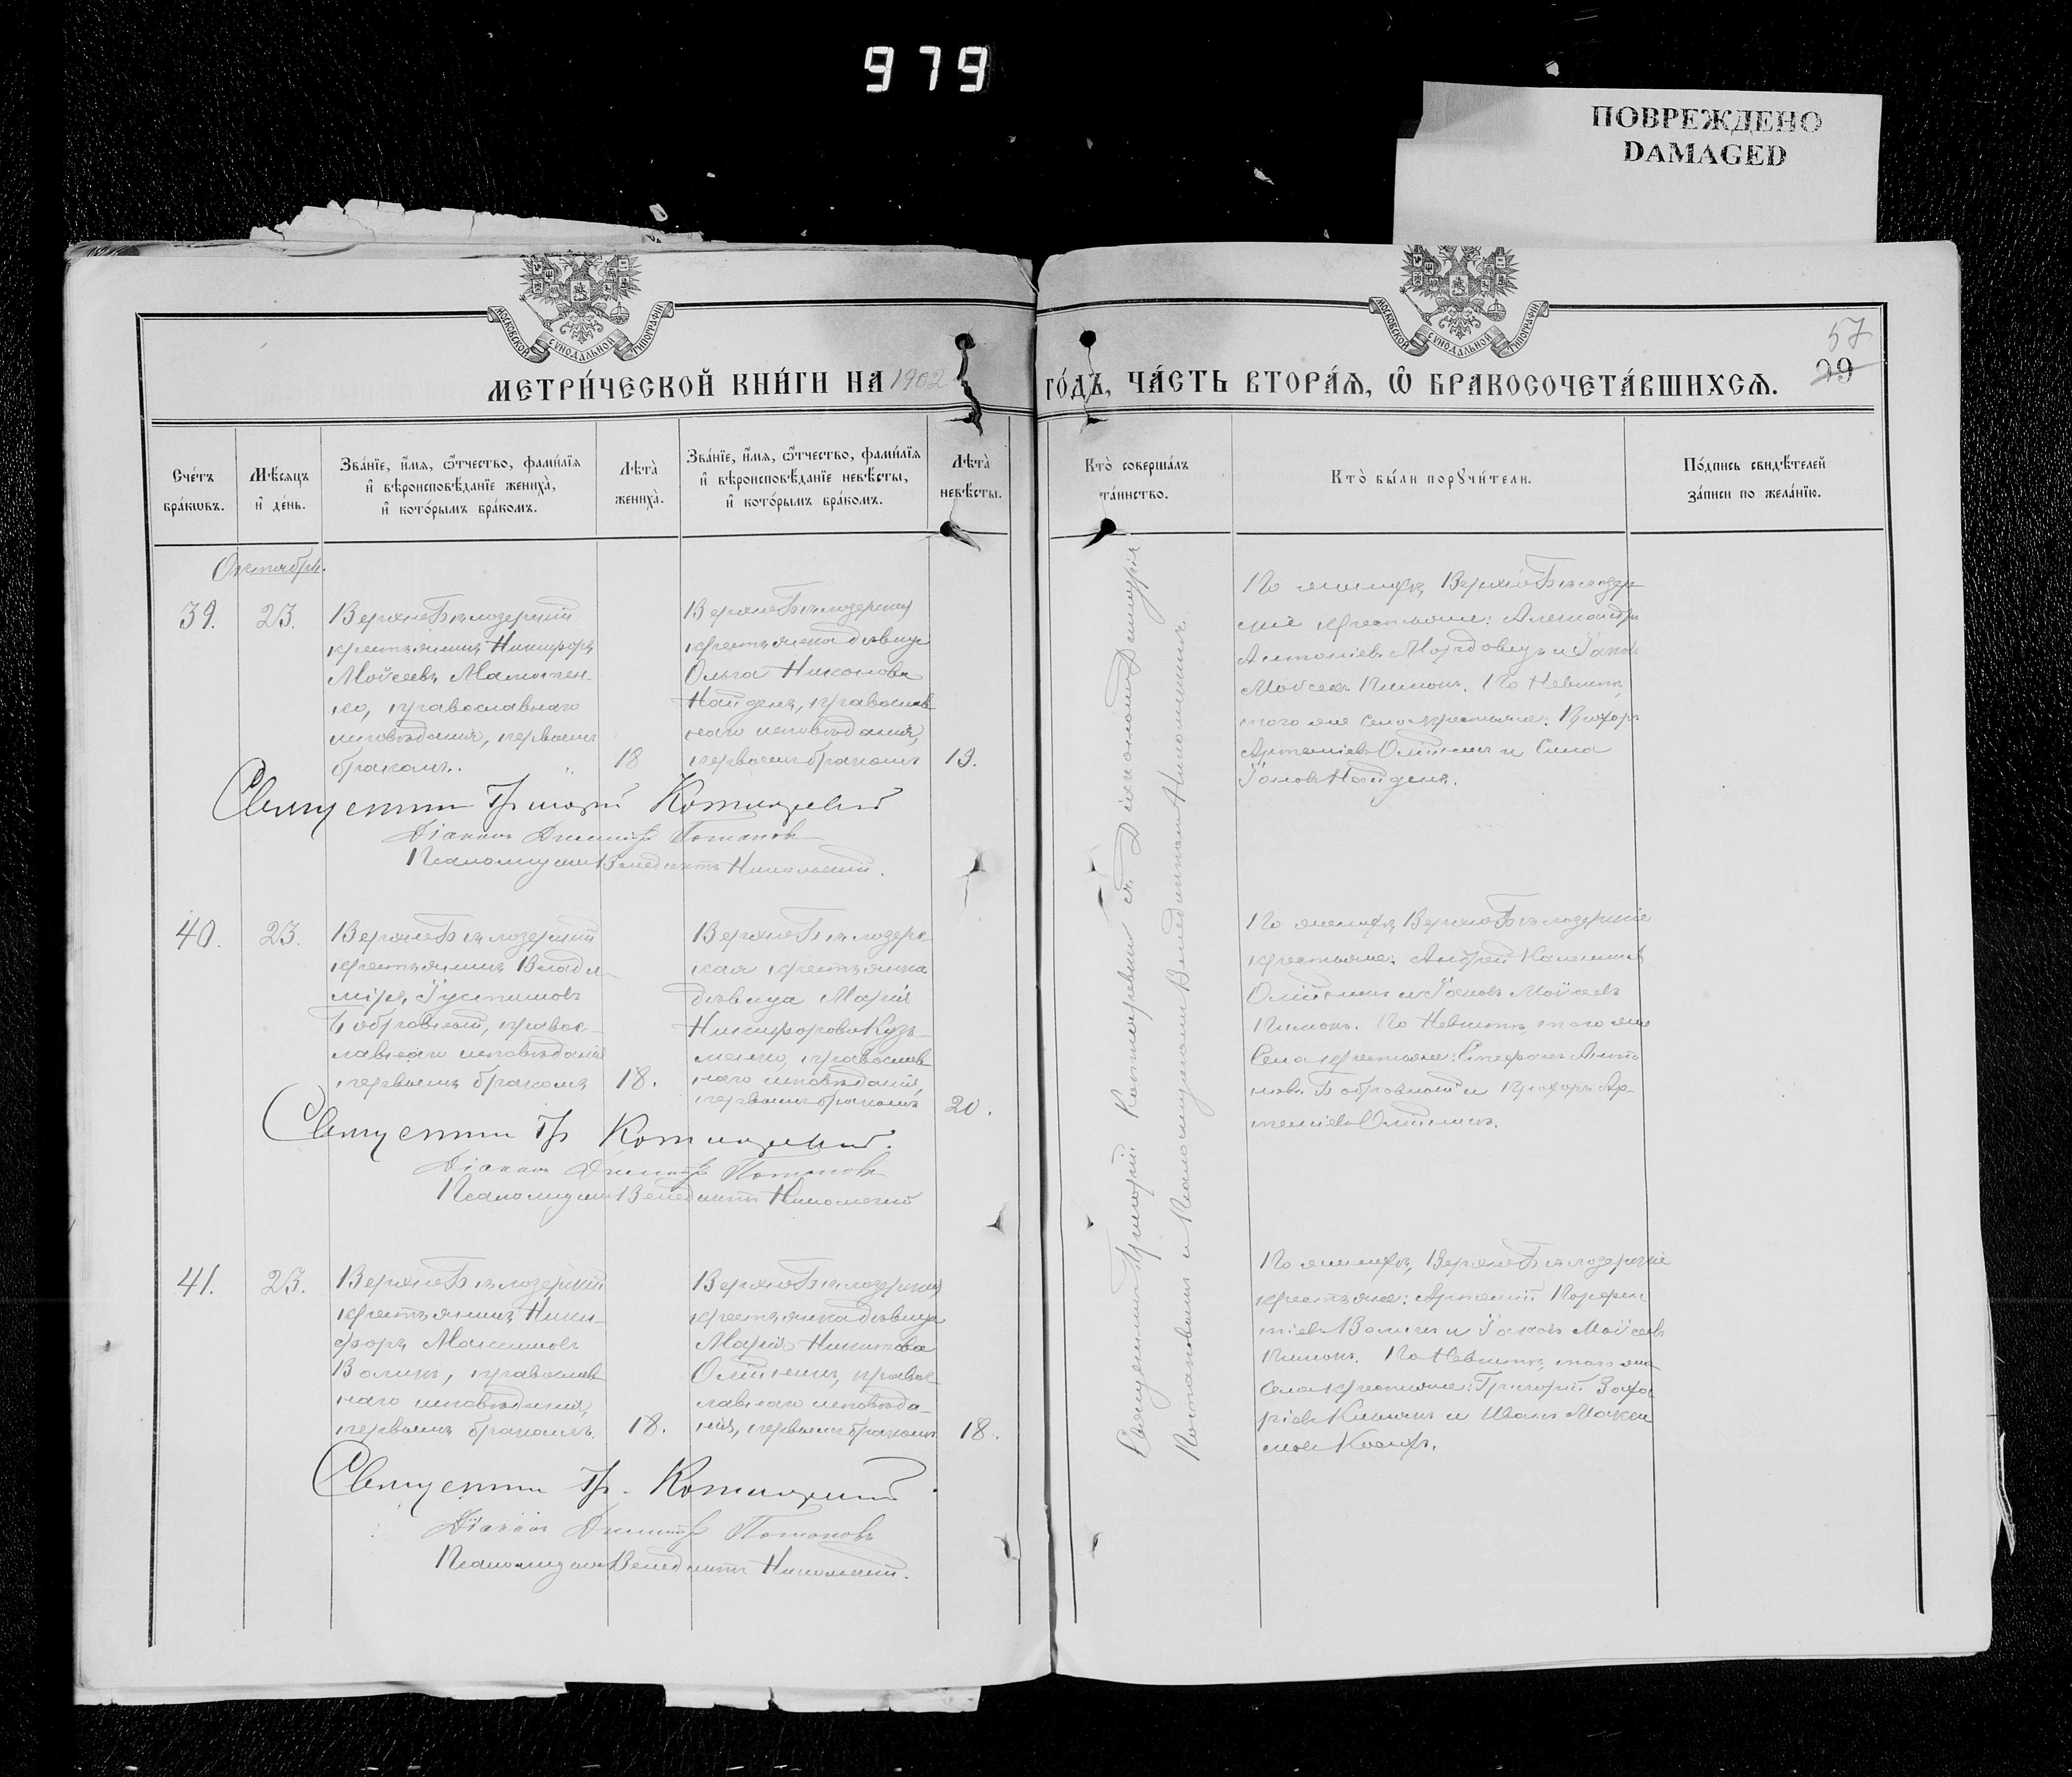 979
ПОВРЕЖДЕНО
DAMAGED
МОСКОВСКОЙ СѴНОДАЛЬНОЙ ТИПОГРАФІИ
МОСКОВСКОЙ СѴНОДАЛЬНОЙ ТИПОГРАФІИ
57
29
МЕТРИ́ЧЕСКОЙ КНИ́ГИ НА 1902 ГО́ДЪ, ЧА́СТЬ ВТОРА́Ѧ, Ѡ БРАКОСОЧЕТА́ВШИХСѦ.
Сче́тъ
бра́кѡвъ.
Мѣ́сѧцъ
и҆ де́нь.
Зва́нїе, и҆́мѧ, ѻ҆́тчество, фами́лїѧ
и҆ вѣроисповѣ́данїе жениха̀,
и҆ кото́рымъ бра́комъ.
Лѣта̀
жениха̀.
Зва́нїе, и҆́мѧ, ѻ҆́тчество, фами́лїѧ
и҆ вѣроисповѣ́данїе невѣ́сты,
и҆ кото́рымъ бра́комъ.
Лѣта̀
невѣ́сты.
Кто̀ соверша́лъ
та́инство.
Кто̀ бы́ли порꙋчи́тели.
По́дпись свидѣ́телей
за́писи по жела́нїю.
Октября.
39.
23.
ВерхнеБѣлозерскій
крестьянинъ Никифоръ
Моѵсеевъ
православнаго
исповѣданія, первымъ
бракомъ.
18
ВерхнеБѣлозерская
крестьянка дѣвица
Ольга Никонова
Найденъ, православ
наго исповѣданія,
первымъ бракомъ
19.
По женихѣ, ВерхнеБѣлозер
скіе крестьяне: Александръ
Антоніевъ Мордовецъ и Іаковъ
Моѵсеевъ Пимонъ. По Невѣстѣ,
того же села крестьяне: Прохоръ
Артеміевъ Олійникъ и Симa
Найденъ.
Священникъ Григорій
Діаконъ Димитрій Потаповъ
Псаломщикъ Венедиктъ Никольскій.
40.
23.
ВерхнеБѣлозерскій
крестьянинъ Влади
міръ Іустиновъ
Бобровный, правос
лавнаго исповѣданія
первымъ бракомъ
18.
ВерхнеБѣлозерс
кая крестьянка
дѣвица Марія
Никифорова Кузь
менко, православ
наго исповѣданія,
первымъ бракомъ
20.
По женихѣ, ВерхнеБѣлозерскіе
крестьяне: Андрей
Олійникъ и Іаковъ Моѵсеевъ
Пимонъ. По Невѣстѣ, того же
Села крестьяне: Стефанъ Анто
новъ Бобровный и Прохоръ Ар-
теміевъ Олійникъ.
Священникъ Гр.
Діаконъ Димитрій Потаповъ
Псаломщикъ Венедиктъ Никольскій
41.
23.
ВерхнеБѣлозерскій
крестьянинъ Ники-
форъ Максимовъ
Воликъ, православ
наго исповѣданія,
первымъ бракомъ.
18.
ВерхнеБѣлозерская
крестьянка дѣвица
Марія Никитова
Олійникъ, правос
лавнаго исповѣда-
нія, первымъ бракомъ
18.
По женихѣ, ВерхнеБѣлозерскіе
крестьяне: Артемій Порфен
тіевъ Воликъ и Іаковъ Моѵсеевъ
Пимонъ. По Невѣстѣ, того же
села крестьяне: Григорій Заха
ріевъ и Иванъ Макси
мовъ
Священникъ Гр.
Діаконъ Димитрій Потаповъ
Псаломщикъ Венедиктъ Никольскій.
Священникъ Григорій съ Діакономъ Димитріемъ
Потаповымъ и Псаломщикомъ Венедиктомъ Никольскимъ.